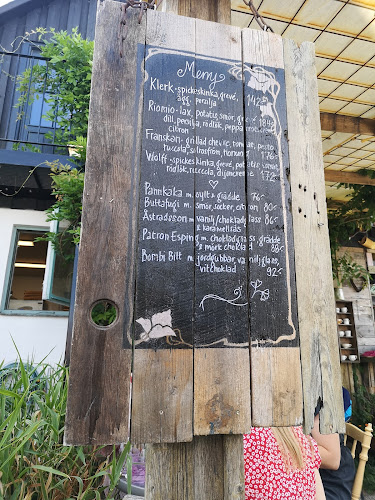 Meny
Klerk - spickeskinka, grevé, 142:-
ägg, persilja
Romio - lax, potatis, smör, grevé
dill, persilja, rödlök, peppar
citron
Franskan - grillad chevré, tomat, pesto
ruccola, solrosfrön, honung 176:-
Wolff - spickeskinka, grevé, potatis, smör
rödlök, ruccola, dijoncreme
Pannkaka m. sylt & grädde 76:-
Buttafuoi m. smör, socker, citron 80:-
Åstradsson m. vanilj/chokladglass 86:-
& karamellsås
Patron Esping m. chokladglass, grädde 88:-
& mörk choklad
Bombi Bitt m. jordgubbar, vaniljglass, 92:-
vit choklad